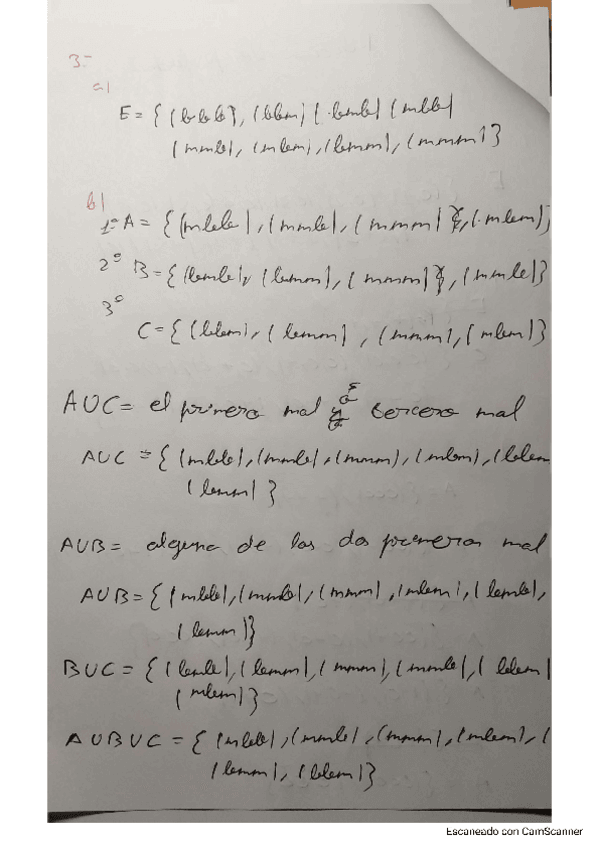 3.-
a)
E = { (bbb), (bbm) (bmb) (mbb)
(mmb), (mbm), (bmm), (mmm) }
b)
1º A = { (mbb), (mmb), (mmm) }, (mbm) }
2º B = { (bmb), (bmm), (mmm) }, (mmb) }
3º
C = { (bbm), (bmm), (mmm), (mbm) }
AUC = el primero mal o tercero mal
AUC = { (mbb), (mmb), (mmm), (mbm), (bbm
(bmm) }
AUB = alguna de las dos primeras mal
AUB = { (mbb), (mmb), (mmm), (mbm), (bmb),
(bmm) }
BUC = { (bmb), (bmm), (mmm), (mmb), (bbm)
(mbm) }
AUBUC = { (mbb), (mmb), (mmm), (mbm), (
(bmm), (bbm) }
Escaneado con CamScanner